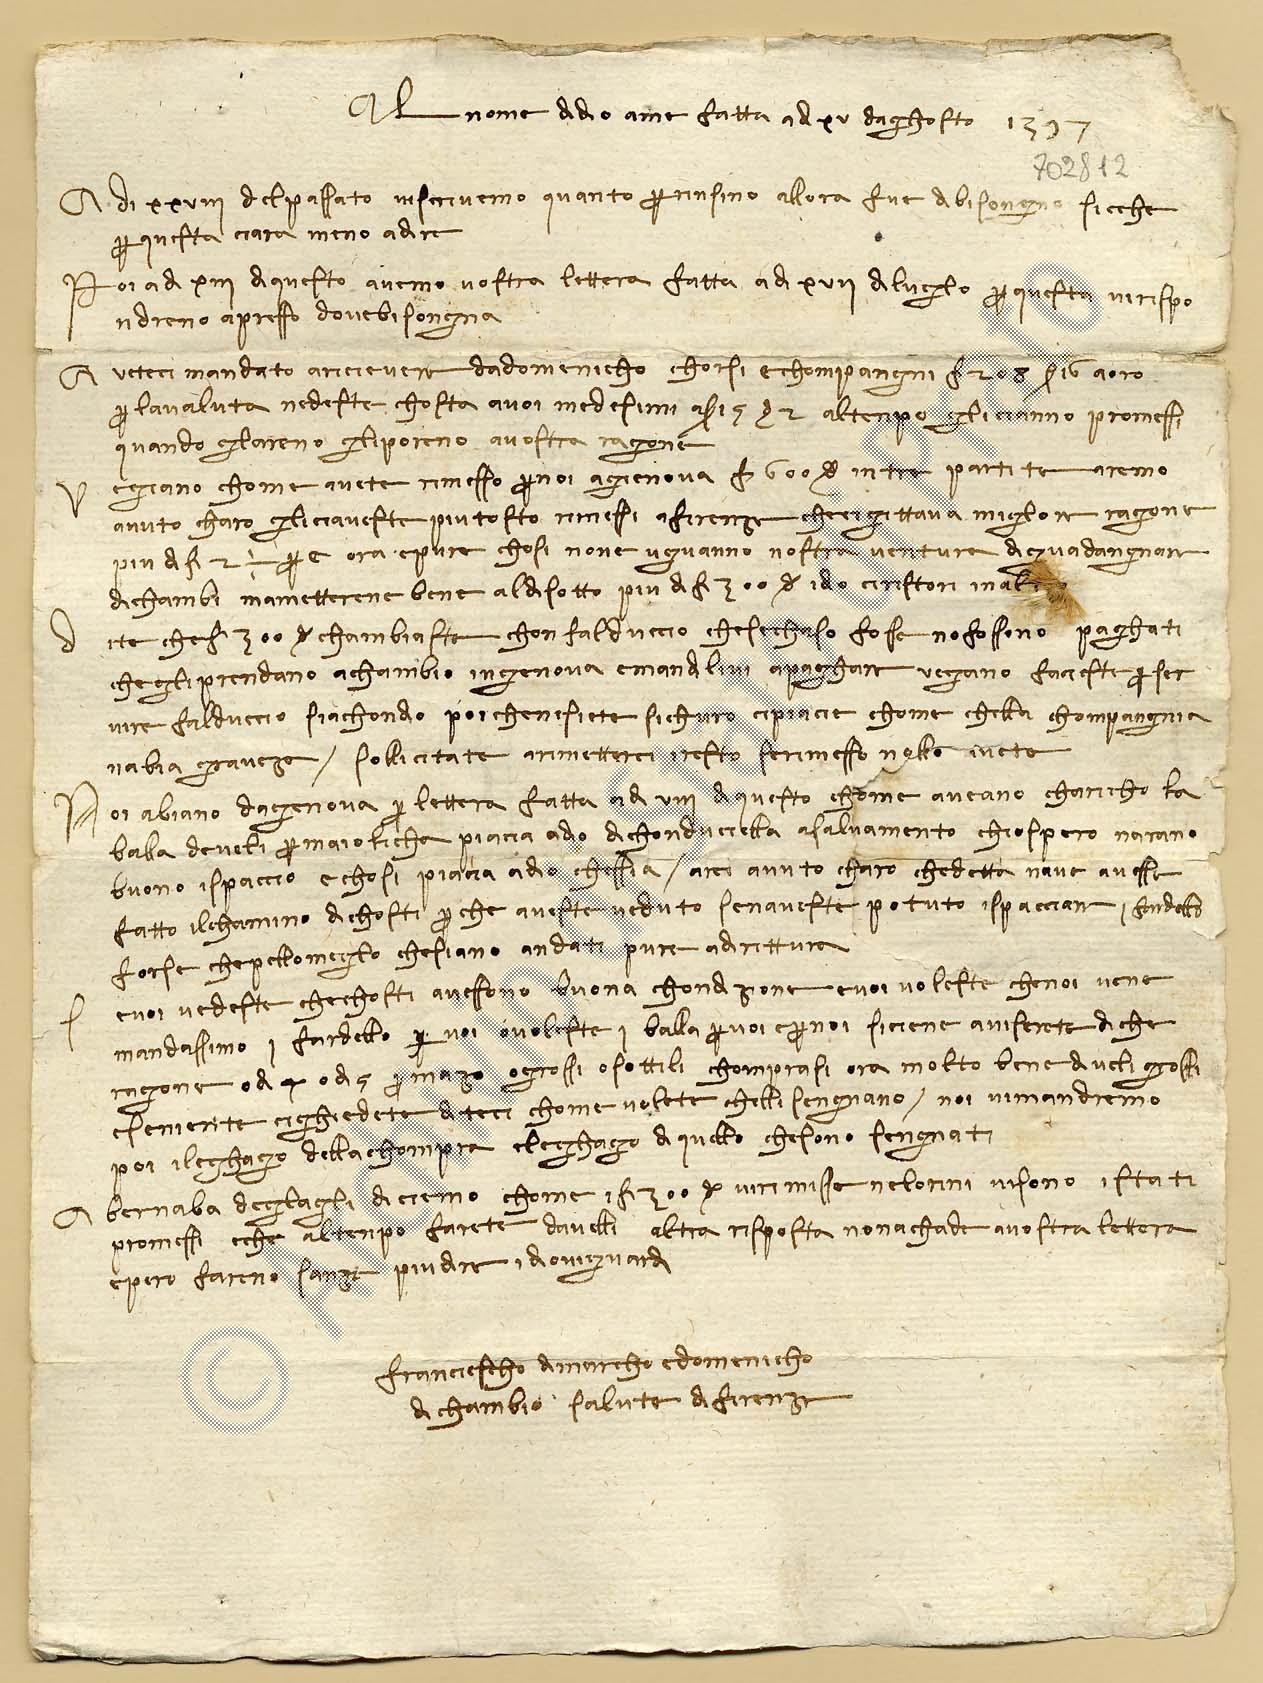 Al nome di dio ame fatta a dì xv daghosto 1397
702812
A di xxviii del passato vi scrivemo quanto per insino allora fue di bisongno sicche
per questa ciara meno a dire
Poi a dì xiii di questo avemo vostra lettera fatta a dì xvii di luglo per questa vi rispo
ndreno apresso dove bisongna
A veteci mandato a ricievere da domenicho chorsi e chompangni f 208 s 16 a oro
per la valuta ne deste chosta a voi medesimi a s 15 d 2 al tenpo gli ci anno promessi
quando glareno gli poreno a vostra ragone
V egiano chome avete rimesso per noi a gienova f 600 d in tre partite aremo
avuto charo gli ci aveste piu tosto rimessi a firenze che ci gittava miglore ragone
piu di f 2 per c ora e pure chosi non e vguanno nostra ventura di guadangnare
di chambi ma metterene bene al disotto piu di f 300 d idio ci ristori in altro
D ite che f 300 d chambiaste chon falduccio che se chaso fosse no fossono paghati
che gli prendano a chambio in genova e mandllvi a paghare vegano faceste per ser
vire falduccio siachondio poi che ne siete sichuro ci piacie chome chella chompangnia
nabia graveze / sollicitate a rimetterci resto se rimesso nollo avete
Noi abiano da genova per lettera fatta a dì viii di questo chome aveano charicho la
balla de veli per maioliche piacia a dio di chonduciella a salvamento chi ospero narano
buono ispaccio e chosi piacia a dio che ssia / arei avuto charo che detta nave avesse
fatto il chamino di chosti per che aveste veduto se naveste potuto ispacciare i fardello
forse che pello meglo che siano andati pure a drittura
S e voi vedeste che chosti avessono buona chondizone e voi voleste che noi vene
mandassimo i fardello per voi o voleste i balla per voi e per noi si ciene aviserete di che
ragone o da 4 o da 5 per mazo o grossi o sottili chomprasi ora molto bene di veli grossi
e se niente ci ghiedete diteci chome volete chelli sengnano / noi vi mandremo
poi il eghagio della chompra e leghagio di quello che sono sengnati
A bernaba degl agli diciemo chome i f 300 d vi rimisse ne lorini vi sono istati
promessi e che al tenpo farete davelli altra risposta non achade a vostra lettera
e pero fareno sanze piu dire idio vi guardi
Franciescho di marcho e domenicho
di chambio salute di firenze